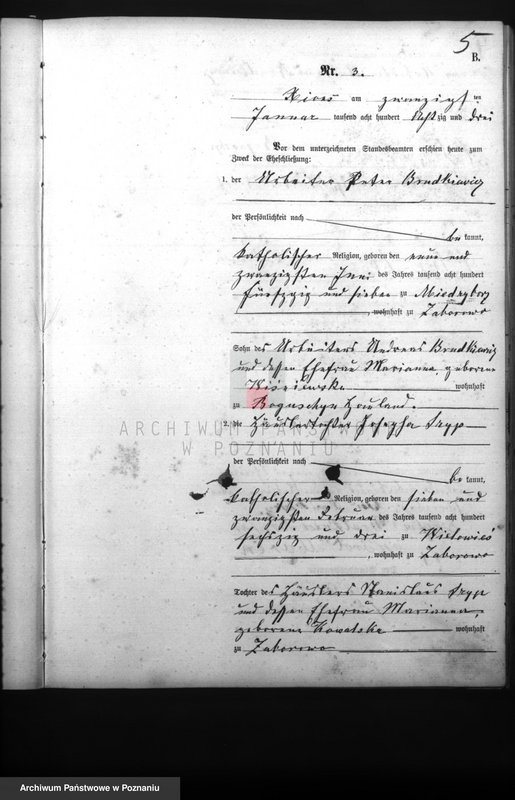 5
B.
Nr. 3.
Xions am zwanzigsten
Januar tausend acht hundert Achtzig und drei
Vor dem unterzeichneten Standesbeamten erschien heute zum
Zweck der Eheschließung:
1. der Arbeiter Peter Brudkiewicz
der Persönlichkeit nach
bekannt,
katholischer Religion, geboren den neun und
zwanzigsten Juni des Jahres tausend acht hundert
fünfzig und sieben zu Miedzyborz
, wohnhaft zu Zaborowo
Sohn des Arbeiters Andreas Brudkiewicz
und dessen Ehefrau Marianna geborene
Wiśniewska wohnhaft
zu Boguschyn Hauland.
2. die Häuslertochter Josepha Szyp
ARCHIWUM PAŃSTWOWE
W POZNANIU
der Persönlichkeit nach
bekannt,
katholischer Religion, geboren den sieben und
zwanzigsten Februar des Jahres tausend acht hundert
sechszig und drei zu Wlosciejewki
, wohnhaft zu Zaborowo
Tochter des Häuslers Stanislaus Szyp
und dessen Ehefrau Marianna,
geborene Kowalska wohnhaft
zu Zaborowo
Archiwum Państwowe w Poznaniu